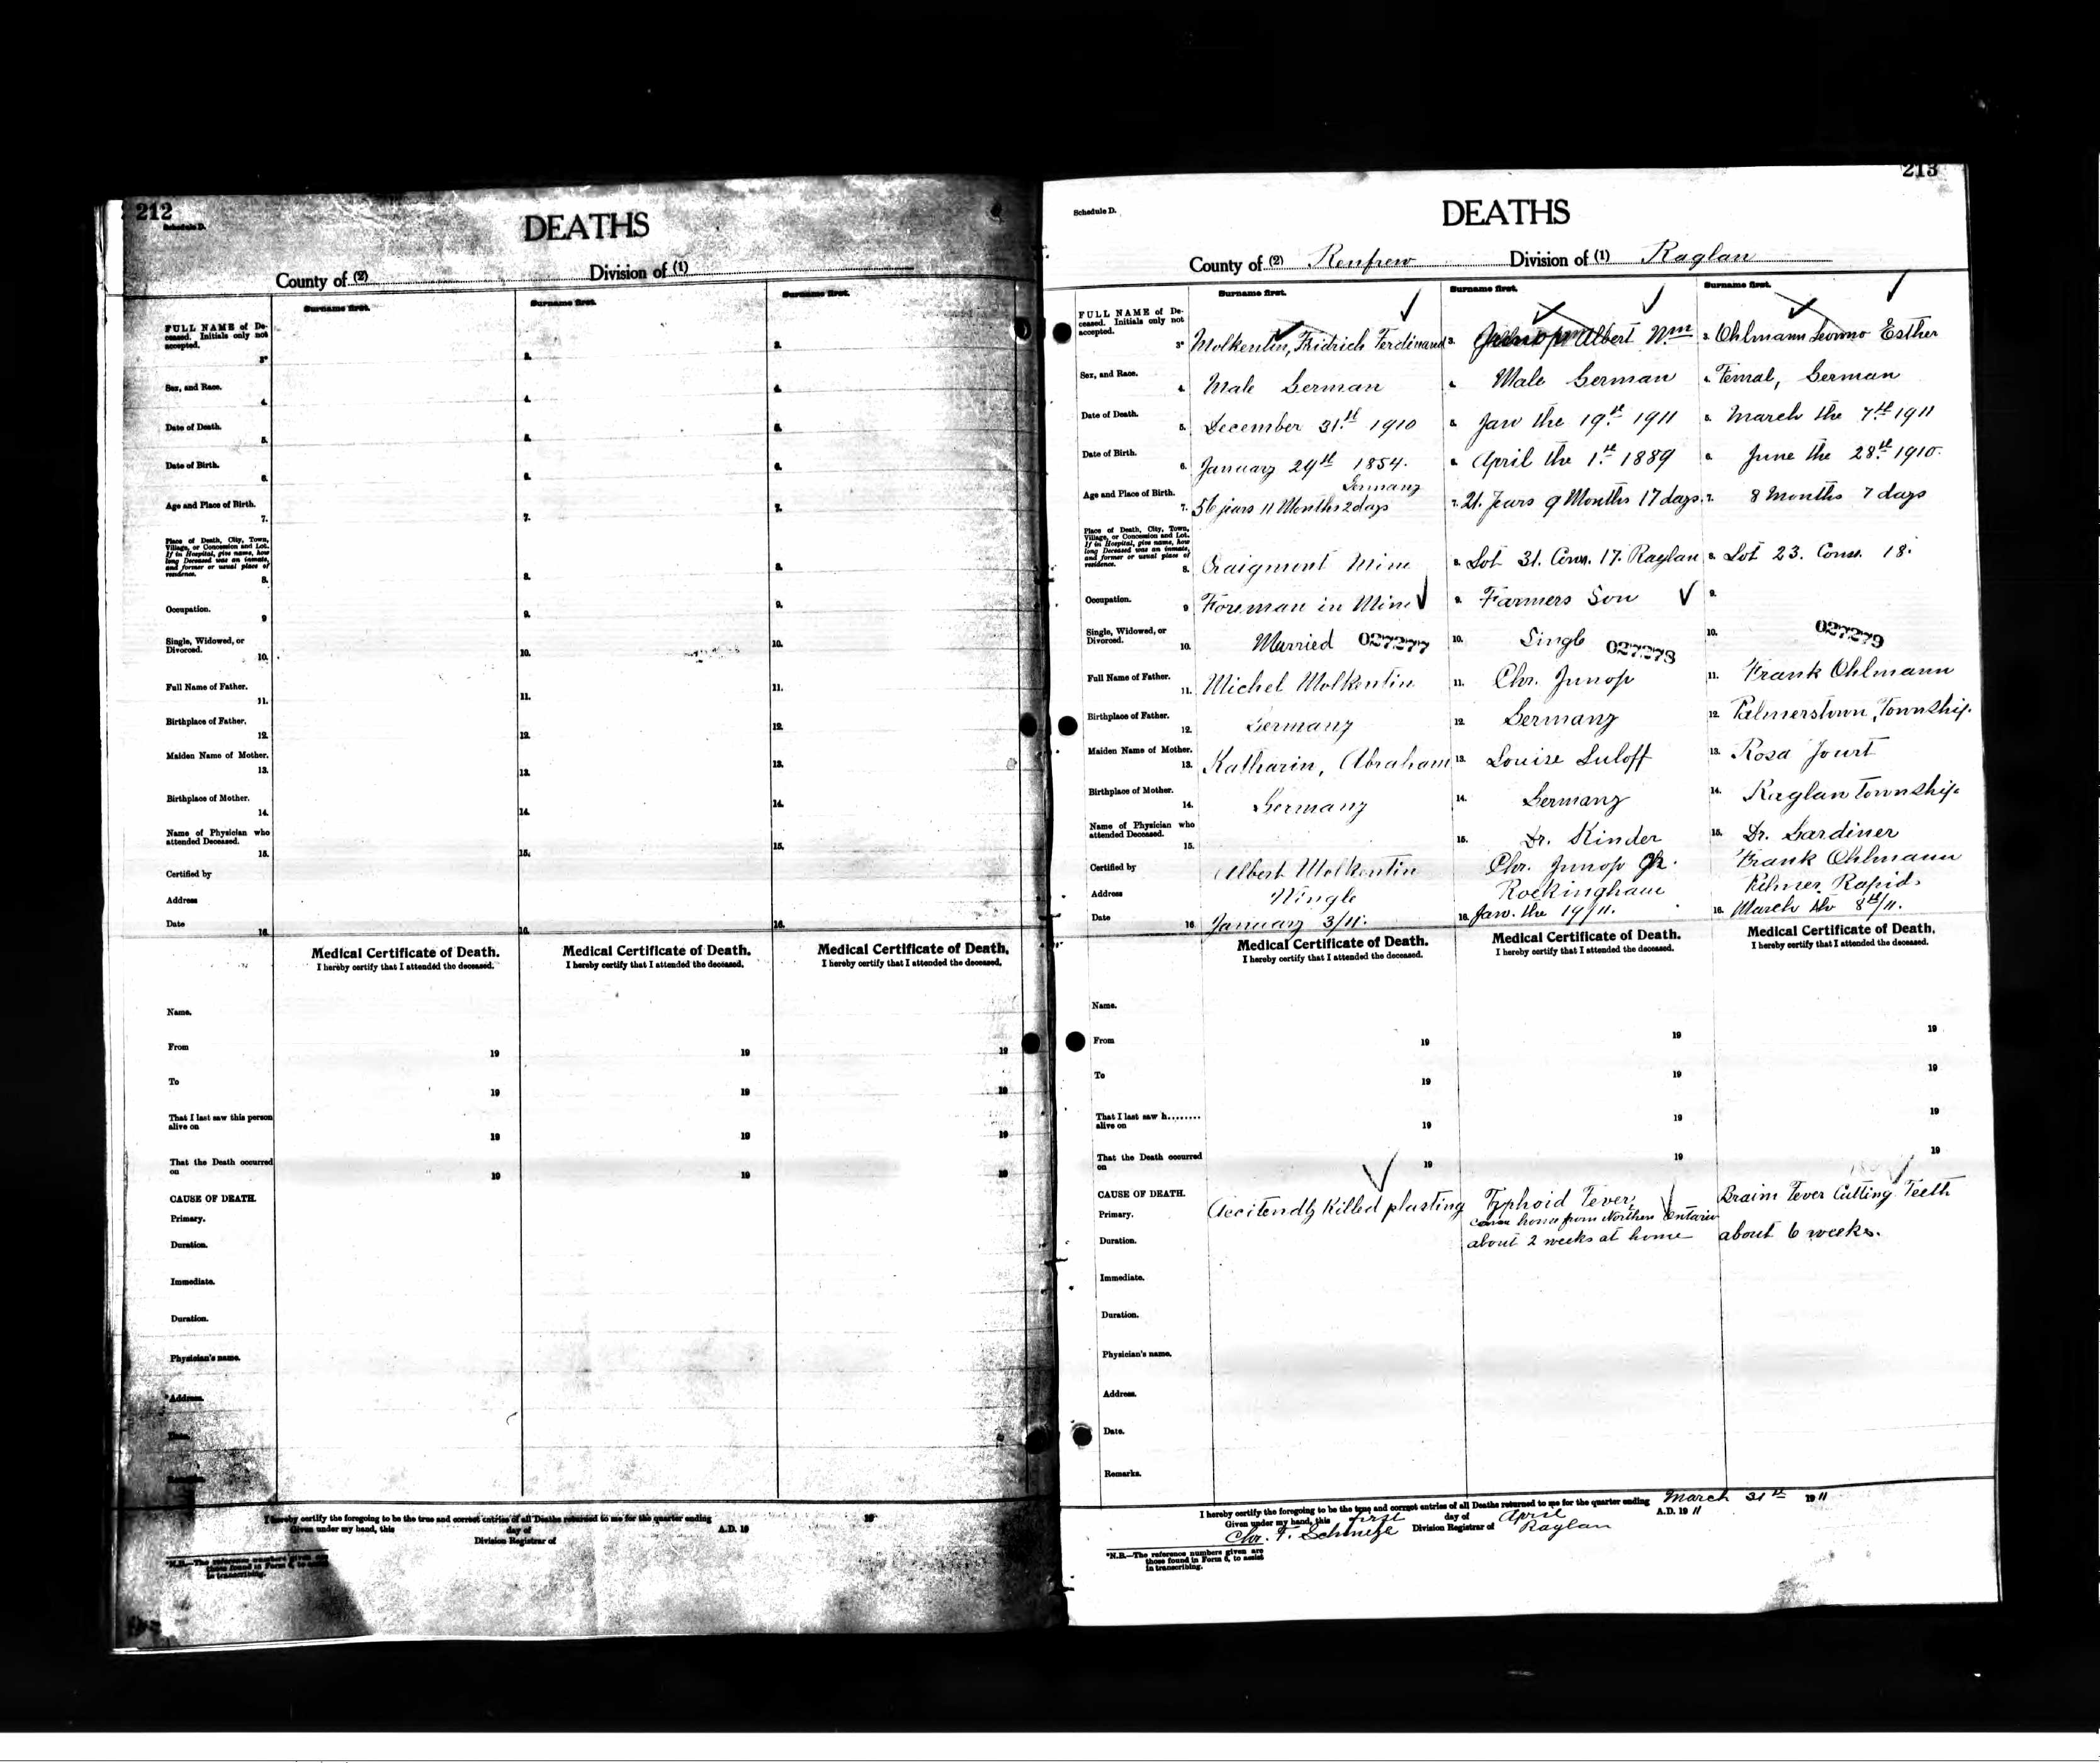 212
Schedule D.
DEATHS
County of (2) Division of (1)
Surname first. Surname first. Surname first.
FULL NAME of De-
ceased. Initials only not
accepted.
3* 3. 3.
Sex, and Race.
4. 4. 4.
Date of Death.
5. 5. 5.
Date of Birth.
6. 6. 6.
Age and Place of Birth.
7. 7. 7.
Place of Death, City, Town,
Village, or Concession and Lot.
If in Hospital, give name, how
long Deceased was an inmate,
and former or usual place of
residence.
8. 8. 8.
Occupation.
9 9. 9.
Single, Widowed, or
Divorced.
10. 10. 10.
Full Name of Father.
11. 11. 11.
Birthplace of Father.
12. 12. 12.
Maiden Name of Mother.
13. 13. 13.
Birthplace of Mother.
14. 14. 14.
Name of Physician who
attended Deceased.
15. 15. 15.
Certified by
Address
Date
16. 16. 16.
Medical Certificate of Death. Medical Certificate of Death. Medical Certificate of Death.
I hereby certify that I attended the deceased. I hereby certify that I attended the deceased. I hereby certify that I attended the deceased.
Name.
From 19 19 19
To 19 19 19
That I last saw this person
alive on 19 19 19
That the Death occurred
on 19 19 19
CAUSE OF DEATH.
Primary.
Duration.
Immediate.
Duration.
Physician's name.
*Address.
Date.
Remarks.
I hereby certify the foregoing to be the true and correct entries of all Deaths returned to me for the quarter ending 19
Given under my hand, this day of A.D. 19
Division Registrar of
*N.B.—The reference numbers given are
those found in Form 6, to assist
in transcribing.
213
Schedule D.
DEATHS
County of (2) Renfrew Division of (1) Raglan
Surname first. Surname first. Surname first.
FULL NAME of De-
ceased. Initials only not
accepted.
3* Molkentin, Fridrich Ferdinand 3. Junop Albert Wm 3. Ohlmann Esther
Sex, and Race.
4. Male German 4. Male German 4. Femal, German
Date of Death.
5. December 31st 1910 5. Jan the 19th 1911 5. March the 7th 1911
Date of Birth.
6. January 29th 1854. 6. April the 1st 1889 6. June the 28th 1910.
Age and Place of Birth. Germany
7. 56 jears 11 Months 2 days 7. 21. Jears 9 Months 17 days. 7. 8 Months 7 days
Place of Death, City, Town,
Village, or Concession and Lot.
If in Hospital, give name, how
long Deceased was an inmate,
and former or usual place of
residence.
8. Craigmont Mine 8. Lot 31. Conn. 17. Raglan 8. Lot 23. Conn. 18.
Occupation.
9 Foreman in Mine 9. Farmers Son 9.
Single, Widowed, or
Divorced.
10. Married 027277 10. Singl 027278 10. 027279
Full Name of Father.
11. Michel Molkentin 11. Chr. Junop 11. Frank Ohlmann
Birthplace of Father.
12. Germany 12. Germany 12. Palmerstown, Township.
Maiden Name of Mother.
13. Katharin, Abraham 13. Louise Luloff 13. Rosa
Birthplace of Mother.
14. Germany 14. Germany 14. Raglan Township.
Name of Physician who
attended Deceased.
15. 15. Dr. Kinder 15. Dr. Gardiner
Certified by Albert Molkentin Chr. Junop Frank Ohlmann
Address Wingle Rockingham Palmer Rapids
Date
16 January 3/11. 16. Jan. the 19/11. 16. March the 8th/11.
Medical Certificate of Death. Medical Certificate of Death. Medical Certificate of Death.
I hereby certify that I attended the deceased. I hereby certify that I attended the deceased. I hereby certify that I attended the deceased.
Name.
From 19 19 19
To 19 19 19
That I last saw h........
alive on 19 19 19
That the Death occurred
on 19 19 19
CAUSE OF DEATH.
Primary. Accitendly Killed plasting Typhoid Fever, Brain Fever Cutting Teeth
home from Northern Ontario
Duration. about 2 weeks at home about 6 weeks.
Immediate.
Duration.
Physician's name.
Address.
Date.
Remarks.
I hereby certify the foregoing to be the true and correct entries of all Deaths returned to me for the quarter ending March 31st 19 11
Given under my hand, this first day of April A.D. 19 11
Chr. F. Division Registrar of Raglan
*N.B.—The reference numbers given are
those found in Form 6, to assist
in transcribing.